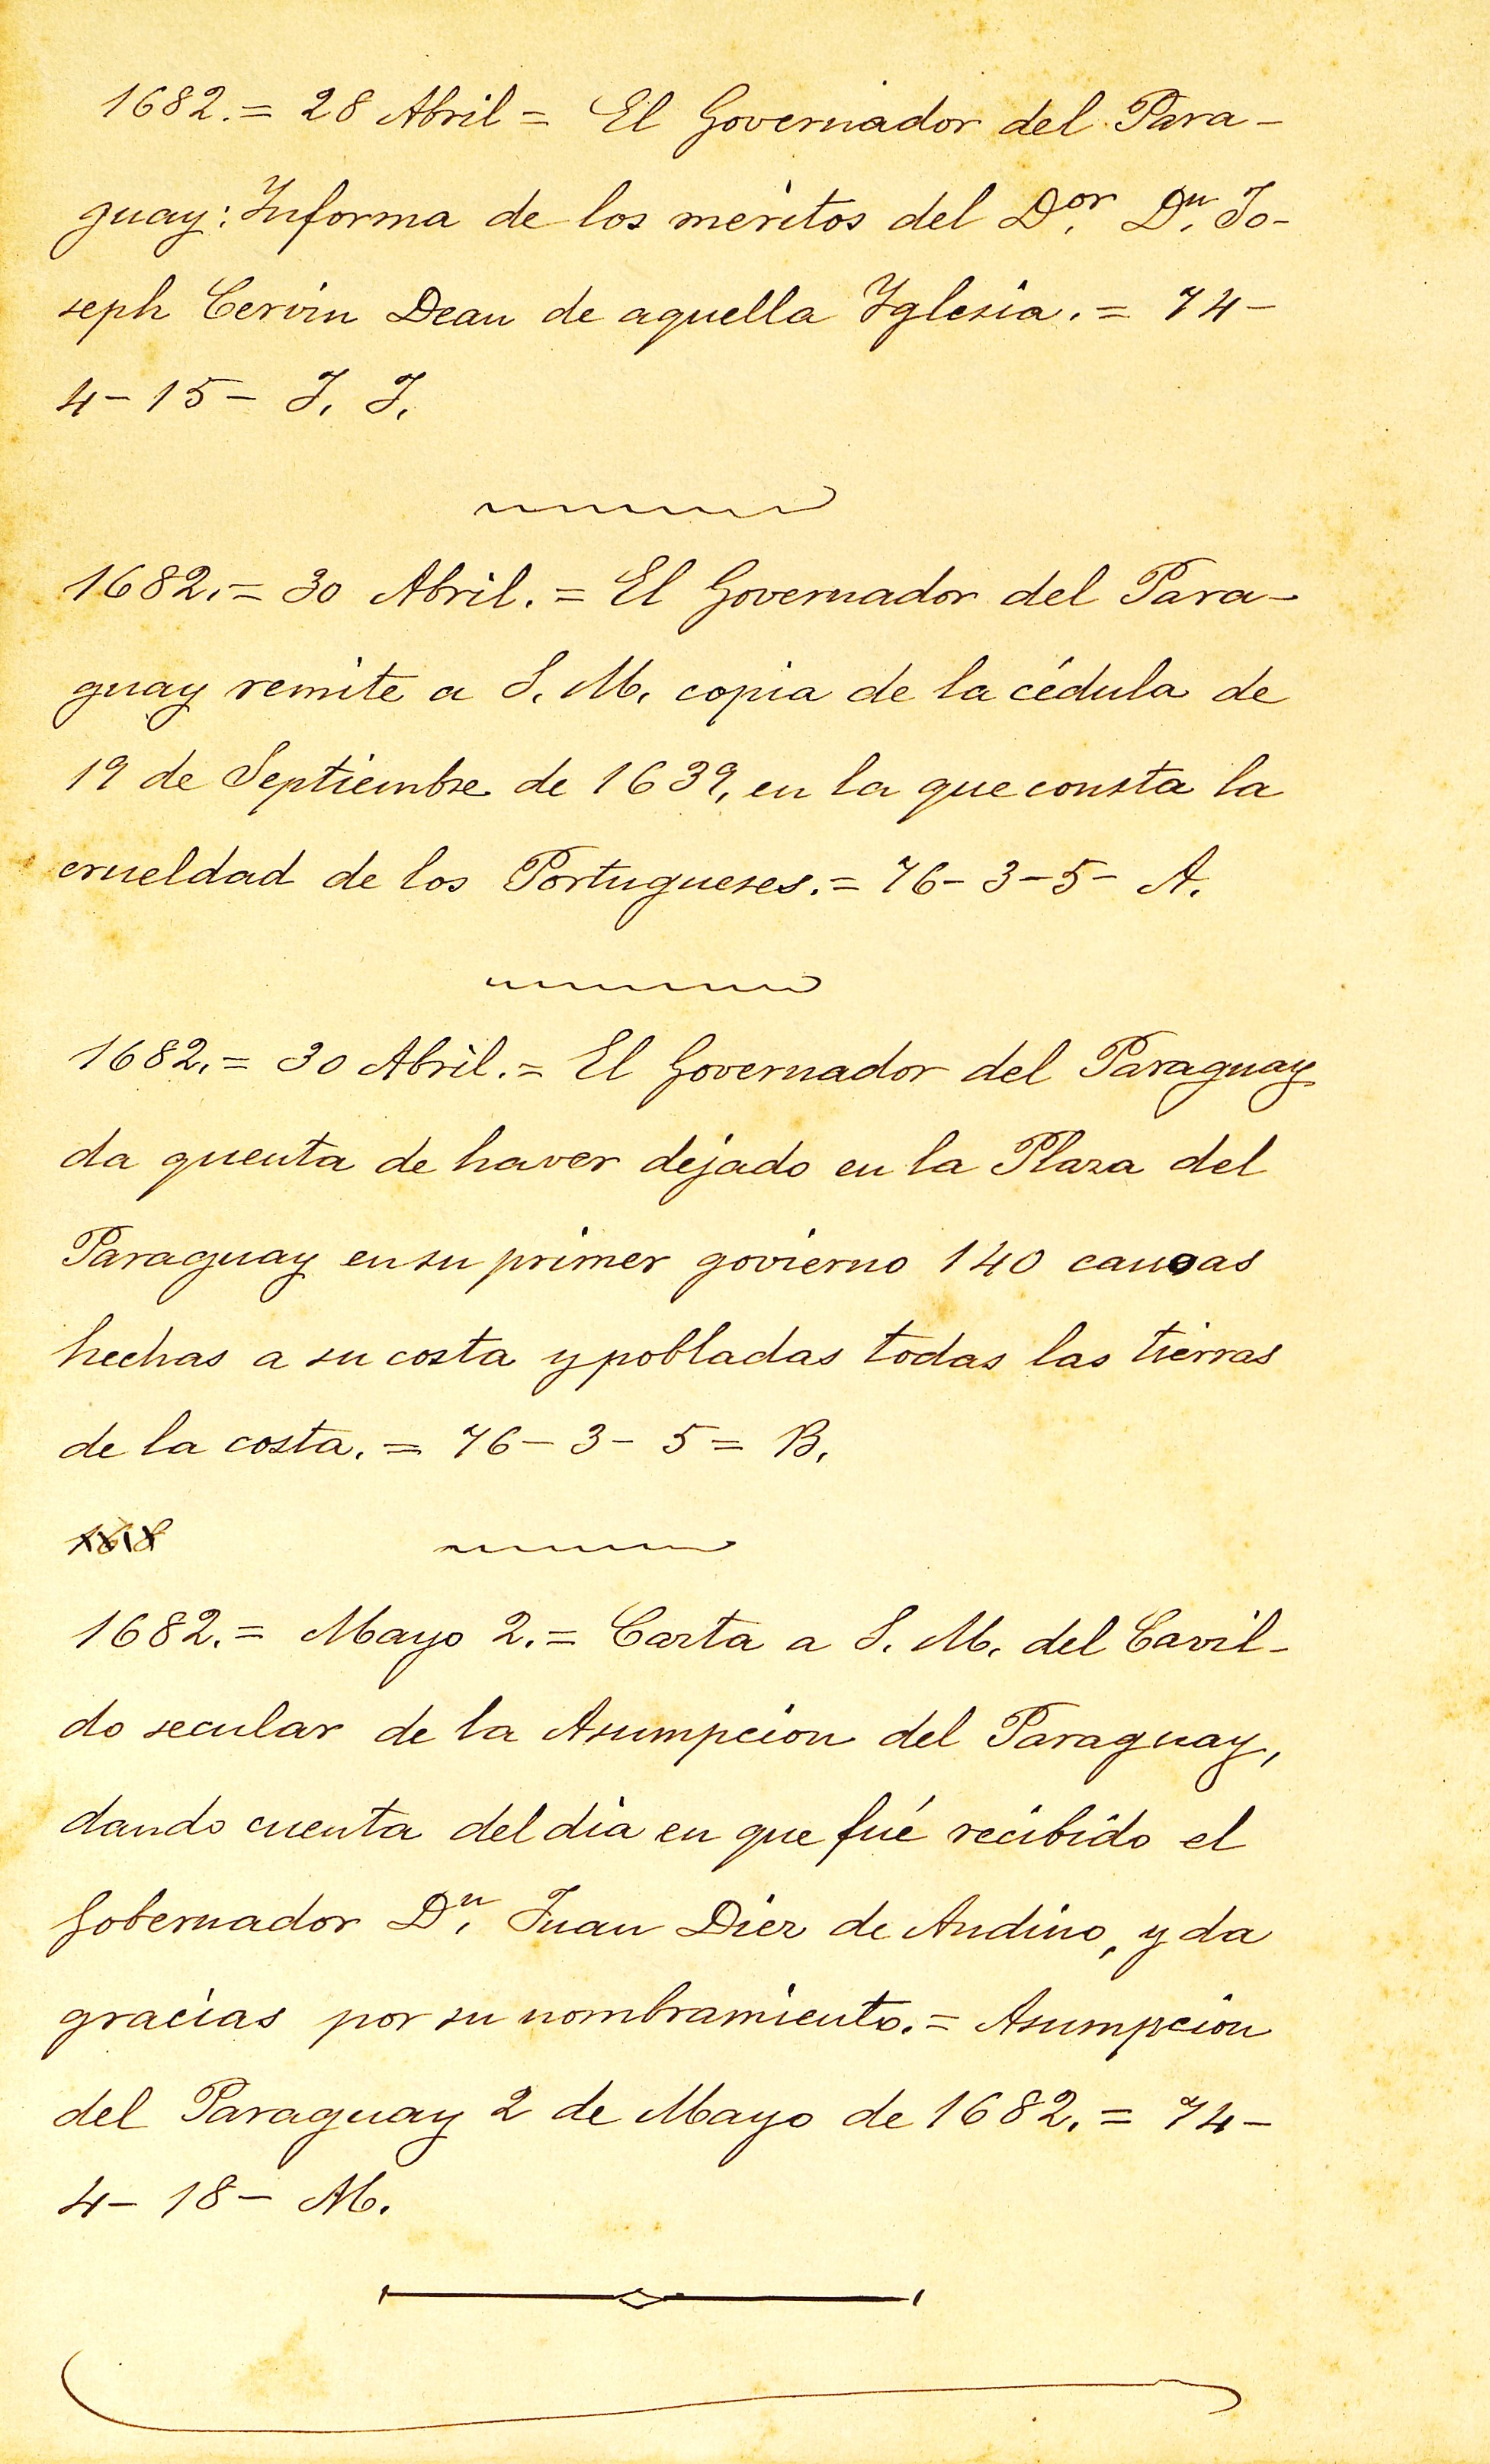 1682.= 28 Abril = El Governador del Para-
guay: Informa de los meritos del D.or D.n Jo-
seph Cervin Dean de aquella Yglesia. = 74-
4-15- J. J.
1682.= 30 Abril. = El Governador del Para-
guay remite a S. M. copia de la cédula de
19 de Septiembre de 1639, en la que consta la
crueldad de los Portugueses. = 76-3-5- A.
1682.= 30 Abril. = El Governador del Paraguay
da quenta de haver dejado en la Plaza del
Paraguay en su primer govierno 140 canoas
hechas a su costa y pobladas todas las tierras
de la costa. = 76-3-5 = B.
168
1682.= Mayo 2. = Carta a S. M. del Cavil-
do secular de la Asumpcion del Paraguay,
dando cuenta del dia en que fué recibido el
Gobernador D.n Juan Diez de Andino, y da
gracias por su nombramiento. = Asumpcion
del Paraguay 2 de Mayo de 1682. = 74-
4-18- M.